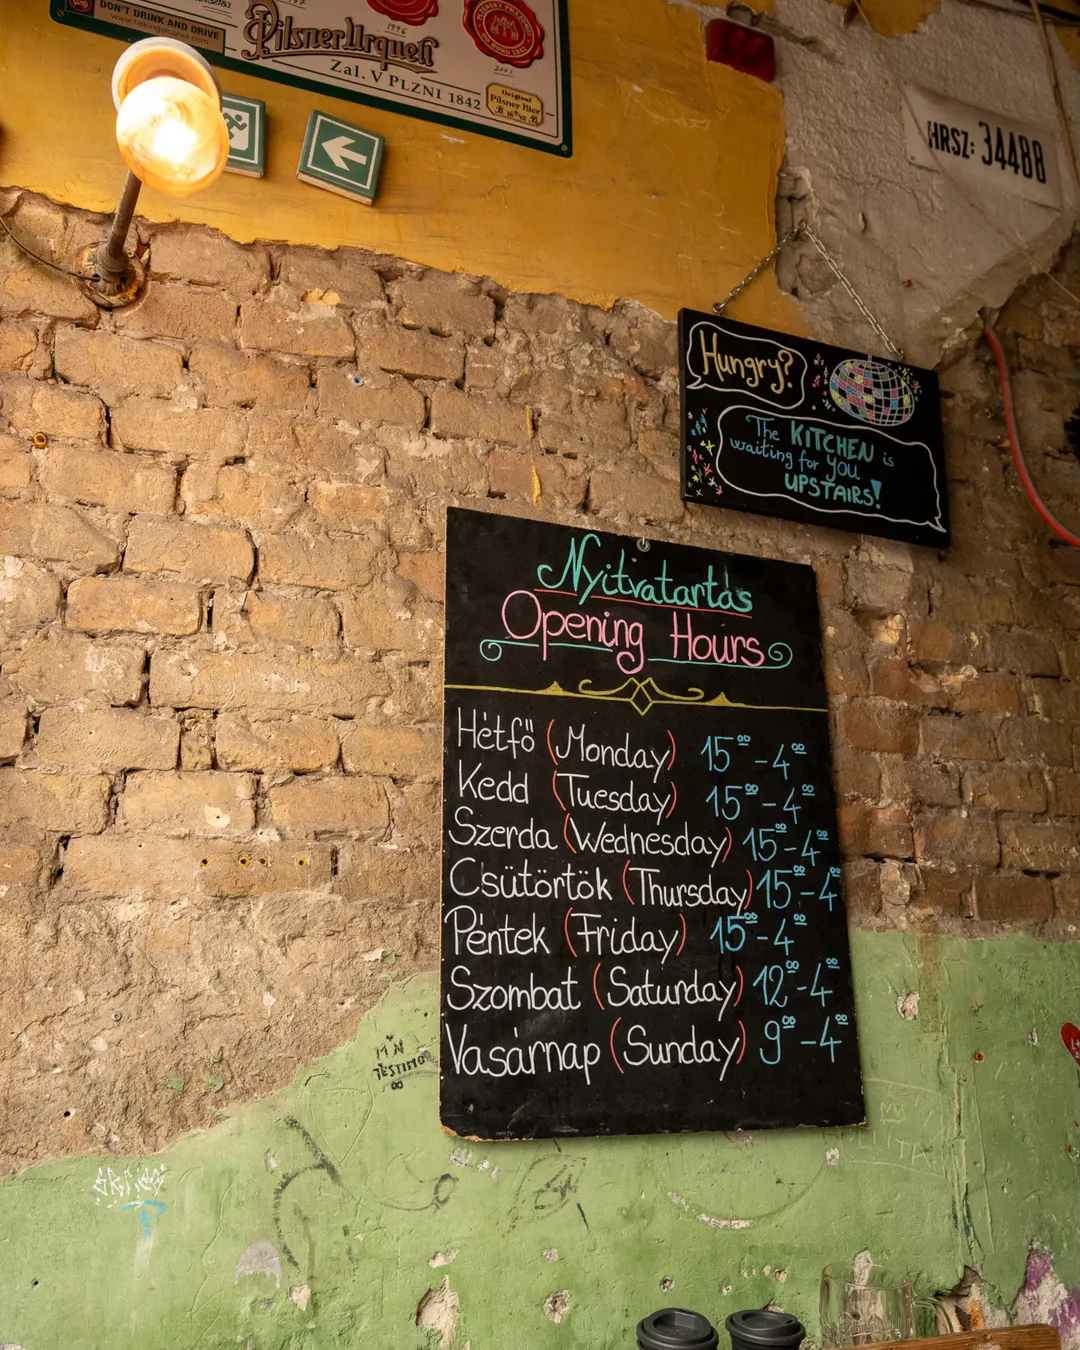 DON'T DRINK AND DRIVE
www.talkingalcohol.com
1996
Pilsner Urquell
Zal. V PLZNI 1842
2001
Original
Pilsner Bier
B 1842 B
HRSZ: 34488
Hungry?
The KITCHEN is
waiting for you
UPSTAIRS!
Nyitvatartás
Opening Hours
Hétfő (Monday) 15⁰⁰-4⁰⁰
Kedd (Tuesday) 15⁰⁰-4⁰⁰
Szerda (Wednesday) 15⁰⁰-4⁰⁰
Csütörtök (Thursday) 15⁰⁰-4⁰⁰
Péntek (Friday) 15⁰⁰-4⁰⁰
Szombat (Saturday) 12⁰⁰-4⁰⁰
Vasárnap (Sunday) 9⁰⁰-4⁰⁰